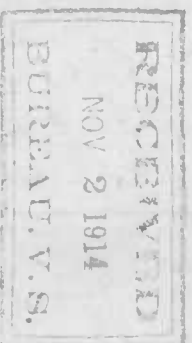 RECEIVED
NOV 2 1914
BUREAU. V. S.